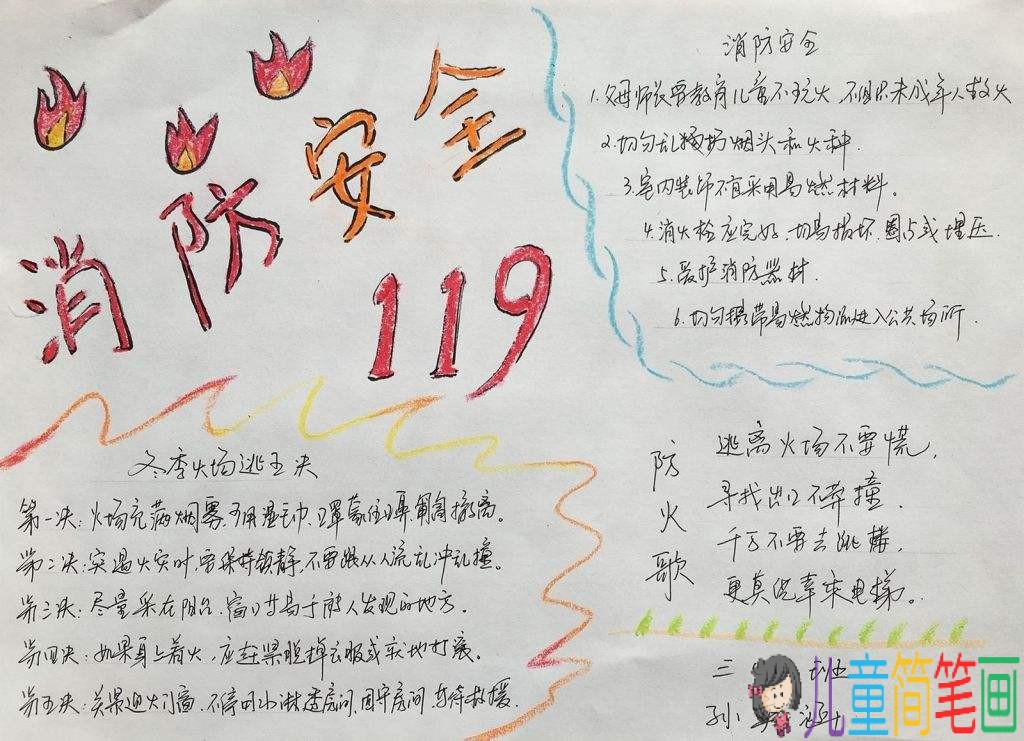 消防安全
119
消防安全
1.父母师长要教育儿童不玩火,不组织未成年人救火
2.切勿乱扔烟头和火种.
3.室内装饰不宜采用易燃材料。
4.消火栓应完好,切勿损坏.圈占或埋压.
5.爱护消防器材.
6.切勿携带易燃物品进入公共场所.
冬季火场逃五决
第一决:火场充满烟雾,可用湿毛巾,口罩蒙住口鼻,匍匐撤离。
第二决:突遇火灾时,要保持镇静,不要跟从人流乱冲乱撞。
第三决:尽量呆在阳台.窗口等易于被人发现的地方.
第四决:如果身上着火,应赶紧脱掉衣服或就地打滚。
第五决:关紧迎火门窗.不停用水淋透房间,固守房间,等待救援.
防火歌
逃离火场不要慌,
寻找出口不莽撞.
千万不要去跳楼,
更莫说乘来电梯。
三 班
孙
儿童简笔画